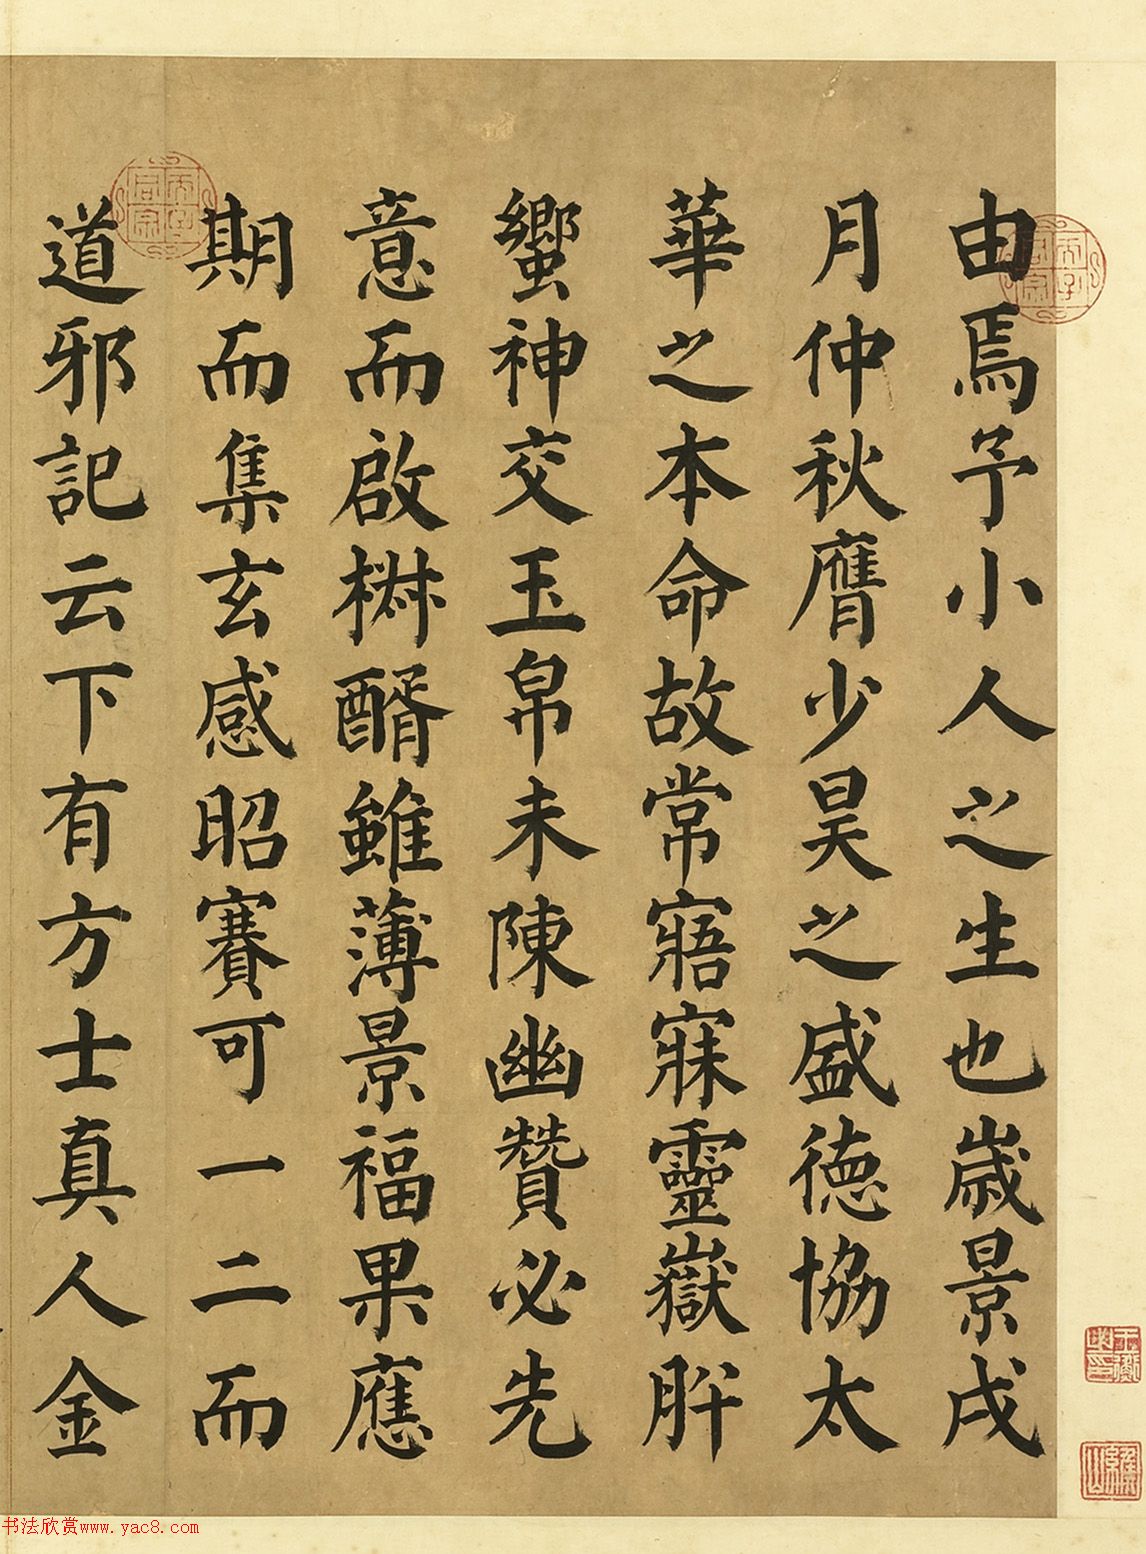 由焉予小人之生也歲景戌
月仲秋膺少昊之盛德協太
華之本命故常寤寐靈嶽肸
蠁神交玉帛未陳幽贊必先
意而啟椒醑雖薄景福果應
期而集玄感昭賽可一二而
道邪記云下有方士真人金
书法欣赏www.yac8.com